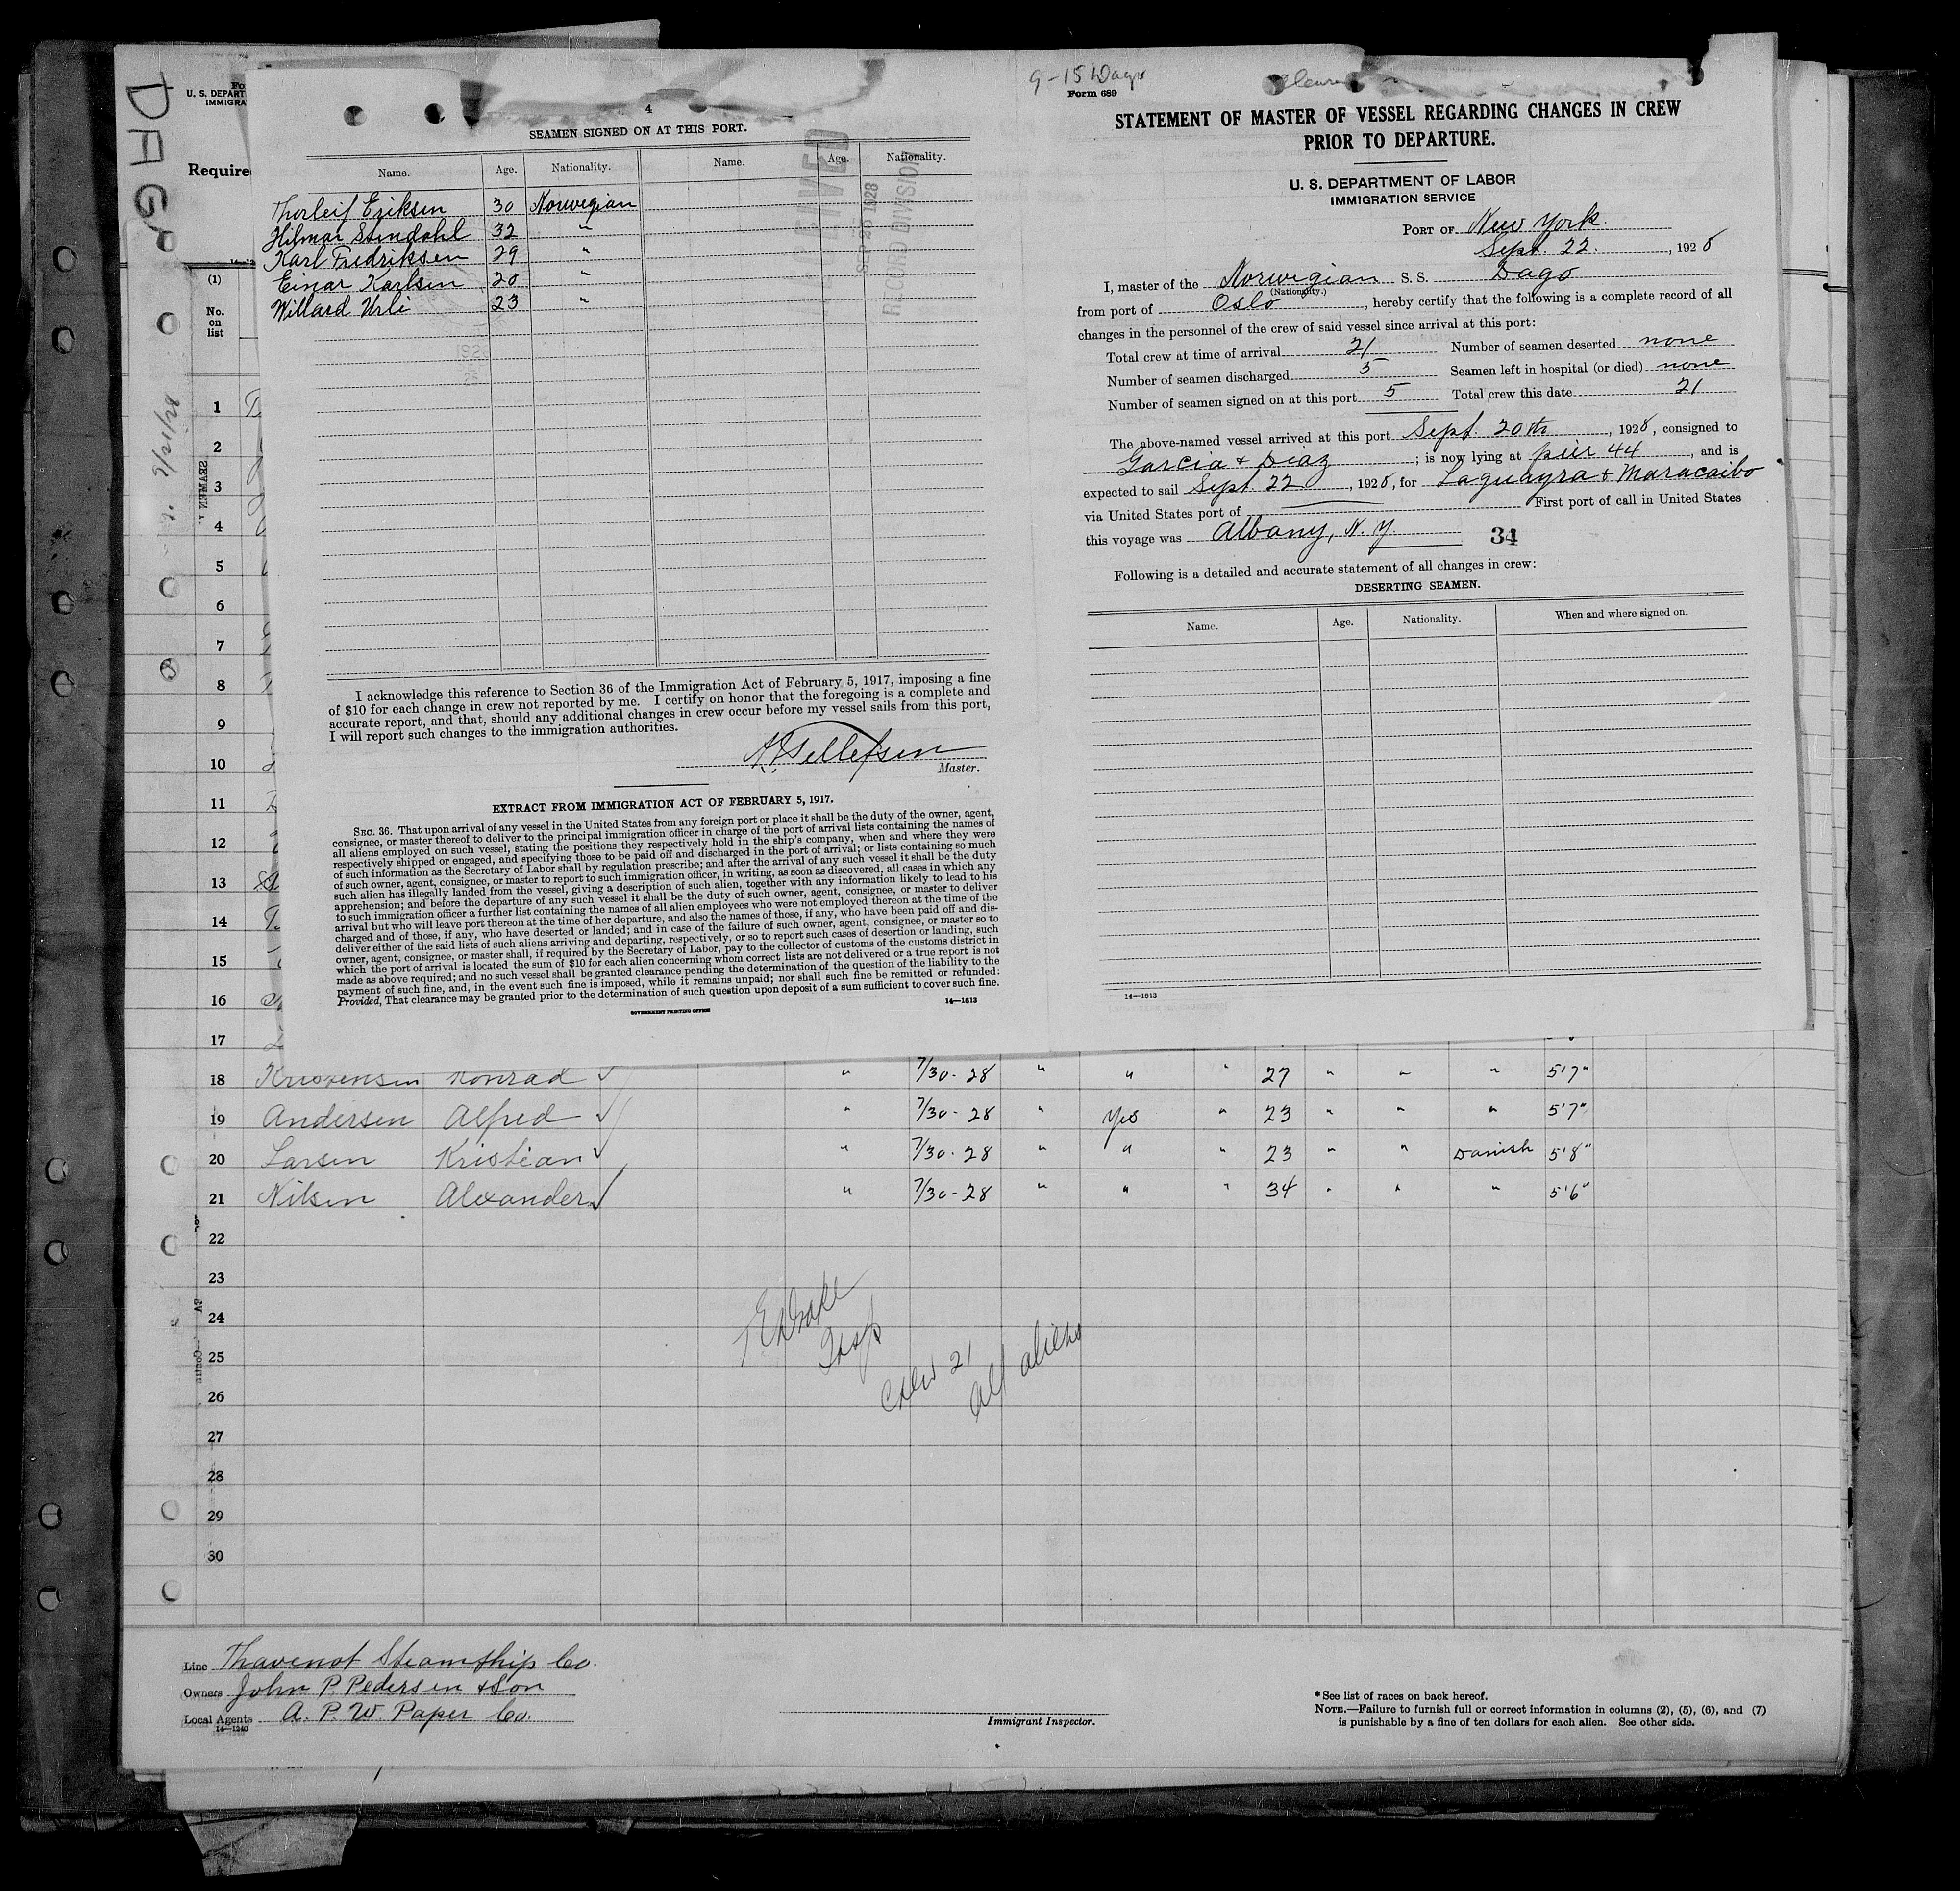 DAGO
U. S. DEPART
IMMIGRA
Require
4
SEAMEN SIGNED ON AT THIS PORT.
Name. Age. Nationality. Name. Age. Nationality.
Thorleif Eriksen 30 Norwegian
Hilmar Stendahl 32 "
Karl Fredriksen 29 "
Einar Karlsen 20 "
Willard Urli 23 "
RECEIVED
1928
RECORD DIVISION
I acknowledge this reference to Section 36 of the Immigration Act of February 5, 1917, imposing a fine
of $10 for each change in crew not reported by me. I certify on honor that the foregoing is a complete and
accurate report, and that, should any additional changes in crew occur before my vessel sails from this port,
I will report such changes to the immigration authorities.
Tellefsen
Master.
EXTRACT FROM IMMIGRATION ACT OF FEBRUARY 5, 1917.
SEC. 36. That upon arrival of any vessel in the United States from any foreign port or place it shall be the duty of the owner, agent,
consignee, or master thereof to deliver to the principal immigration officer in charge of the port of arrival lists containing the names of
all aliens employed on such vessel, stating the positions they respectively hold in the ship's company, when and where they were
respectively shipped or engaged, and specifying those to be paid off and discharged in the port of arrival; or lists containing so much
of such information as the Secretary of Labor shall by regulation prescribe; and after the arrival of any such vessel it shall be the duty
of such owner, agent, consignee, or master to report to such immigration officer, in writing, as soon as discovered, all cases in which any
such alien has illegally landed from the vessel, giving a description of such alien, together with any information likely to lead to his
apprehension; and before the departure of any such vessel it shall be the duty of such owner, agent, consignee, or master to deliver
to such immigration officer a further list containing the names of all alien employees who were not employed thereon at the time of the
arrival but who will leave port thereon at the time of her departure, and also the names of those, if any, who have been paid off and dis-
charged and of those, if any, who have deserted or landed; and in case of the failure of such owner, agent, consignee, or master so to
deliver either of the said lists of such aliens arriving and departing, respectively, or so to report such cases of desertion or landing, such
owner, agent, consignee, or master shall, if required by the Secretary of Labor, pay to the collector of customs of the customs district in
which the port of arrival is located the sum of $10 for each alien concerning whom correct lists are not delivered or a true report is not
made as above required; and no such vessel shall be granted clearance pending the determination of the question of the liability to the
payment of such fine, and, in the event such fine is imposed, while it remains unpaid; nor shall such fine be remitted or refunded:
Provided, That clearance may be granted prior to the determination of such question upon deposit of a sum sufficient to cover such fine.
GOVERNMENT PRINTING OFFICE 14—1613
9-15 Dago
Form 689
STATEMENT OF MASTER OF VESSEL REGARDING CHANGES IN CREW
PRIOR TO DEPARTURE.
U. S. DEPARTMENT OF LABOR
IMMIGRATION SERVICE
PORT OF New York
Sept. 22. , 1928
I, master of the Norwegian S. S. Dago
(Nationality.)
from port of Oslo , hereby certify that the following is a complete record of all
changes in the personnel of the crew of said vessel since arrival at this port:
Total crew at time of arrival 21 Number of seamen deserted none
Number of seamen discharged 5 Seamen left in hospital (or died) none
Number of seamen signed on at this port 5 Total crew this date 21
The above-named vessel arrived at this port Sept. 20th , 1928, consigned to
Garcia + Diaz ; is now lying at pier 44 , and is
expected to sail Sept. 22 , 1928, for Laguayra + Maracaibo
via United States port of First port of call in United States
this voyage was Albany, N. Y. 34
Following is a detailed and accurate statement of all changes in crew:
DESERTING SEAMEN.
Name. Age. Nationality. When and where signed on.
14—1613
(1)
No.
on
list
1
2
3
4
5
6
7
8
9
10
11
12
13
14
15
16
17
18 Kristensen Konrad " 7/30-28 " " " 27 " " " 5'7"
19 Andersen Alfred " 7/30-28 " Yes " 23 " " " 5'7"
20 Larsen Kristian " 7/30-28 " " " 23 " " Danish 5'8"
21 Nilsen Alexander " 7/30-28 " " " 34 " " " 5'6"
22
23
24
25
26
27
28
29
30
Drake
Insp
Crew 21
all aliens
Line Thavenot Steamship Co.
Owners John P. Pedersen & Son
Local Agents A. P. W. Paper Co.
14—1240
Immigrant Inspector.
* See list of races on back hereof.
NOTE.—Failure to furnish full or correct information in columns (2), (5), (6), and (7)
is punishable by a fine of ten dollars for each alien. See other side.